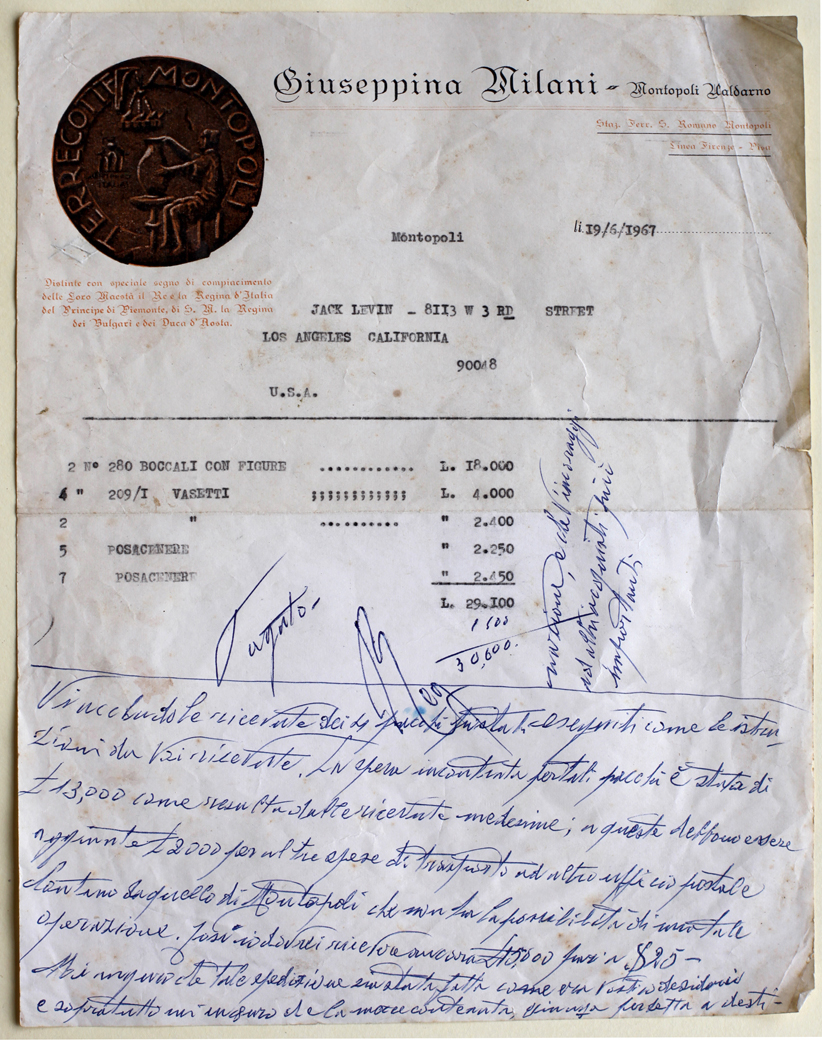 TERRECOTTE MONTOPOLI
Giuseppina Milani - Montopoli Valdarno
Staz. Ferr. S. Romano Montopoli
Linea Firenze - Pisa
Montopoli
li 19/6/1967
Distinte con speciale segno di compiacimento
delle Loro Maestà il Re e la Regina d'Italia
del Principe di Piemonte, di S. M. la Regina
dei Bulgari e dei Duca d'Aosta.
JACK LEVIN - 8II3 W 3 RD STREET
LOS ANGELES CALIFORNIA
90048
U.S.A.
2 N° 280 BOCCALI CON FIGURE ............ L. I8.000
4 " 209/I VASETTI ;;;;;;;;;;;; L. 4.000
2 " .......... " 2.400
5 POSACENERE " 2.250
7 POSACENERE " 2.450
L. 29.I00
30,600.
Pagato -
Vi accludo le ricevute dei 4 pacchi postali eseguiti come le istru-
zioni da Voi ricevute. La spesa incontrata per tali pacchi è stata di
£ 13,000 come resulta dalle ricevute medesime; a queste debbono essere
aggiunte £ 2000 per altre spese di trasporto ad altro ufficio postale
lontano da quello di Montopoli che non ha la possibilità di una tale
operazione. Così io dovrei ricevere ancora £ 15,000 pari a $ 25 -
Mi auguro che tale spedizione sia stata fatta come era Vostro desiderio
e sopratutto mi auguro che la merce contenuta, giunga perfetta a desti-
nazione, e che Vi incoraggi
ad altri acquisti più
importanti